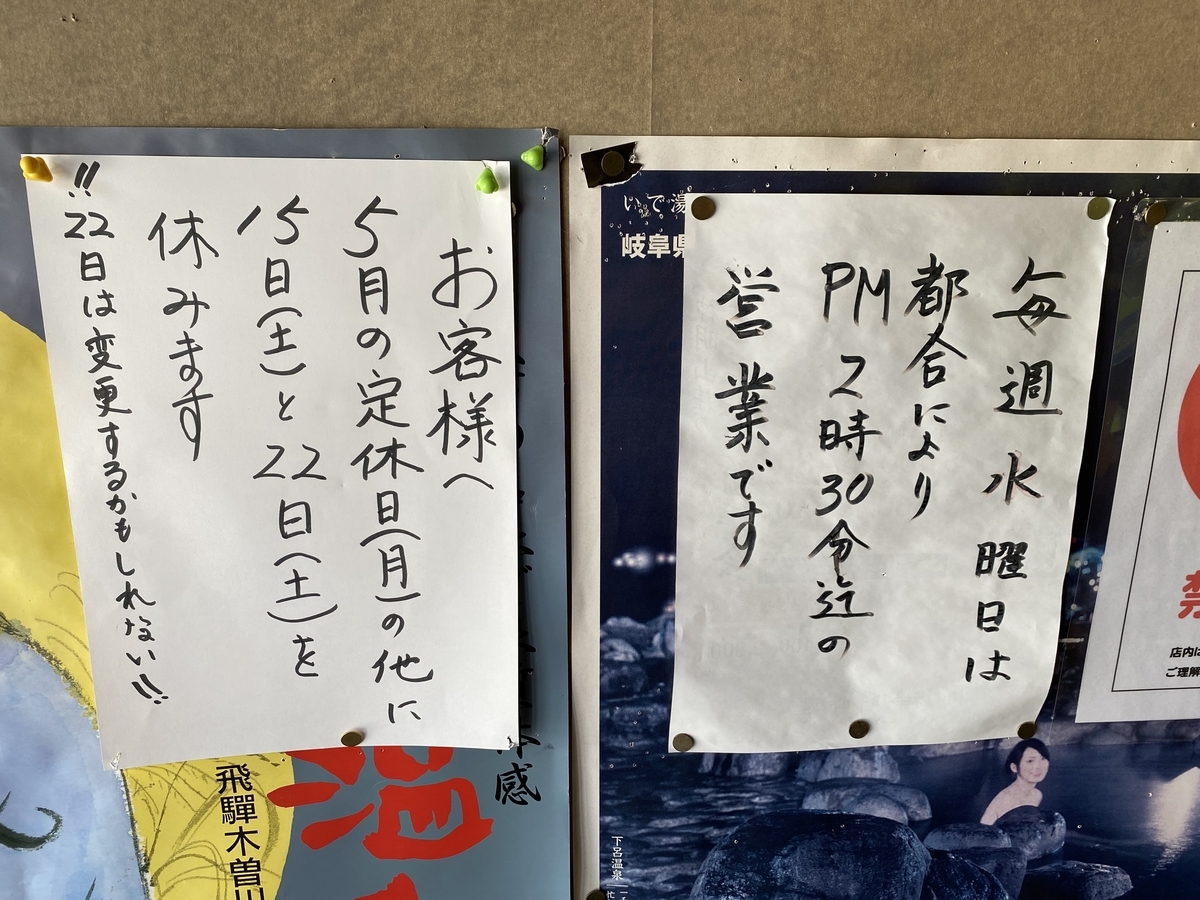 毎週水曜日は
都合により
PM2時30分迄の
営業です
お客様へ
5月の定休日(月)の他に
15日(土)と22日(土)を
休みます
!!22日は変更するかもしれない!!
いで湯
岐阜県
飛驒木曽川
感
温
下呂温泉
禁
店内は
ご理解